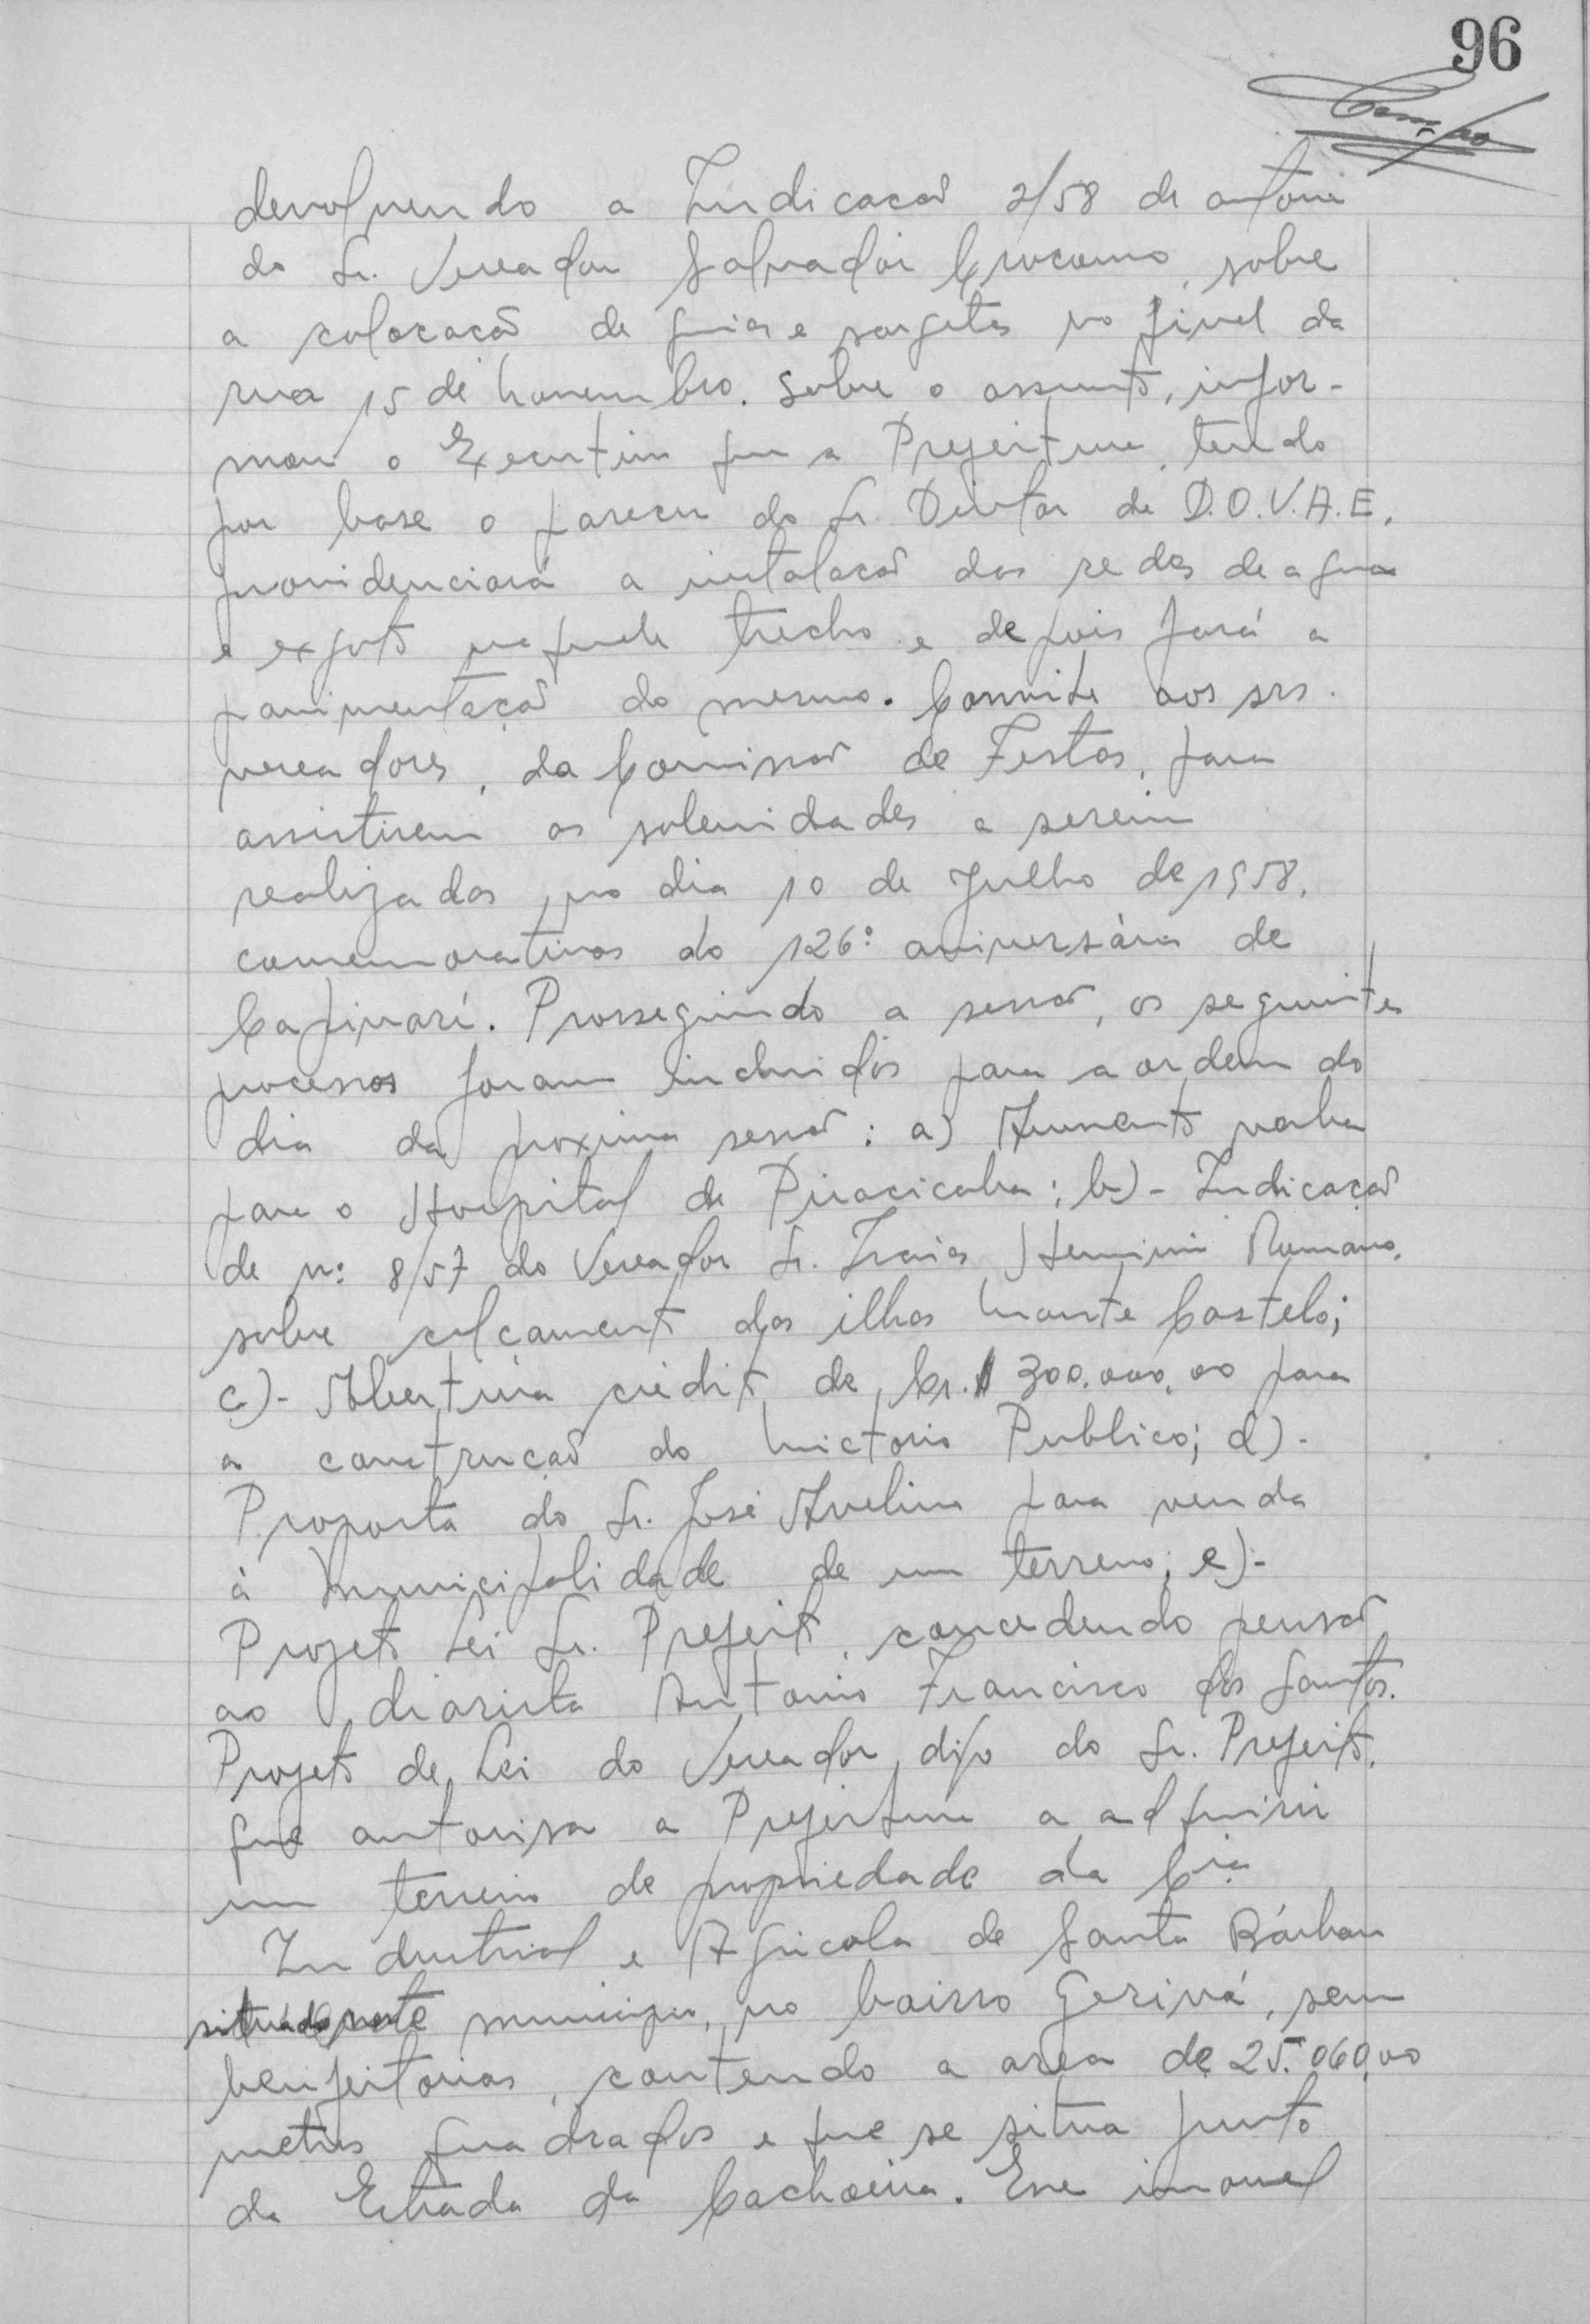 96
devolvendo a Indicacaõ 2/58 de autoria
do Sr. Vereador Salvador Crocomo, sobre
a colocacaõ de guias e sargetas no final da
rua 15 de Novembro. Sobre o assunto, infor-
mou o Executivo que a Prefeitura, tendo
por base o parecer do Sr. Diretor de D.O.V.A.E.
providenciará a instalacaõ das redes de agua
e exgoto naquele trecho e depois fará a
pavimentaçaõ do mesmo. Convite aos srs.
vereadores, da Comissaõ de Festas, para
assistirem as solenidades a serem
realizadas, no dia 10 de Julho de 1958,
comemorativas do 126º aniversário de
Capivarí. Prosseguindo a sessaõ, os seguintes
processos foram incluidos para a ordem do
dia da proxima sessaõ: a) Aumento verba
para o Hospital de Piracicaba; b)- Indicaçaõ
de nº 8/57 do Vereador Sr. Isaias Romano,
sobre calçamento das ilhas Monte Castelo;
c)- Abertura crédito de Cr.$ 300.000,00 para
a construcaõ do Mictorio Publico; d)-
Proposta do Sr. José Avelino para venda
à Municipalidade de um terreno; e)-
Projeto Lei Sr. Prefeito, concedendo pensaõ
ao diarista Antonio Francisco dos Santos.
Projeto de Lei do Vereador, digo do Sr. Prefeito,
que autorisa a Prefeitura a adquirir
um terreno de propriedade da Cia
Industrial e Agricola de Santa Bárbara
situado neste municipio, no bairro Gerivá, sem
benfeitorias, contendo a area de 25.060,00
metros quadrados e que se situa junto
da Estrada da Cachoeira. Esse imovel